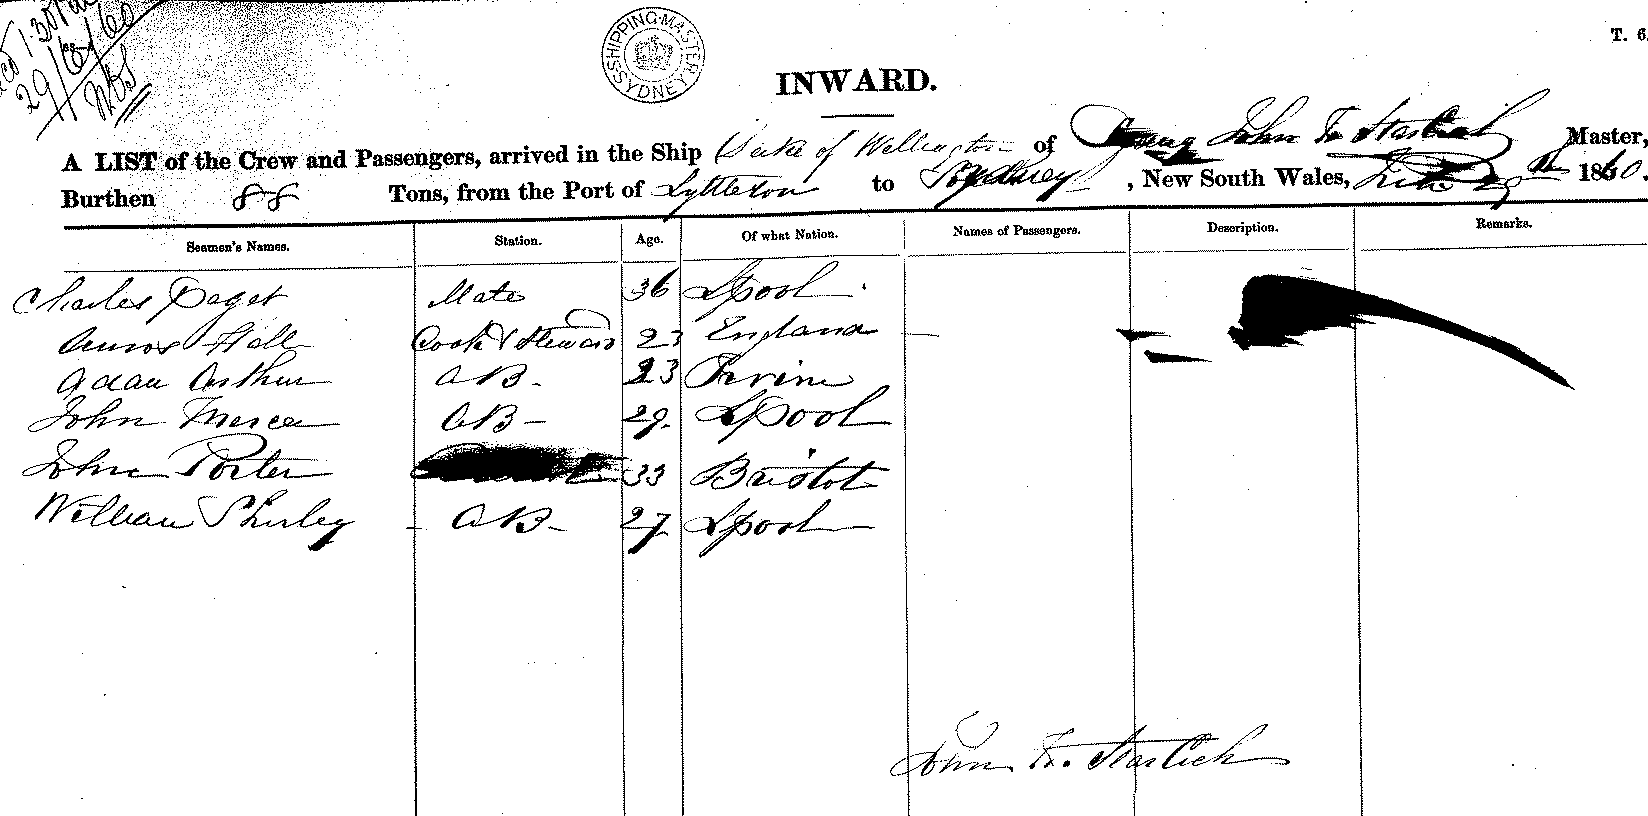 1.30 PM
29/6/60
SHIPPING MASTER SYDNEY
T. 6.
INWARD.
A LIST of the Crew and Passengers, arrived in the Ship Duke of Wellington of John Master,
Burthen 88 Tons, from the Port of Lyttleton to Sydney, New South Wales, 29th 1860.
Seamen's Names. Station. Age. Of what Nation. Names of Passengers. Description. Remarks.
Charles Paget Mate 36 Lpool
Amos Hall Cook & Steward 23 England
Adam Arthur AB 23 Irvine
John Mercer AB 29 Lpool
John Porter 33 Bristol
William Shirley AB 27 Lpool
John